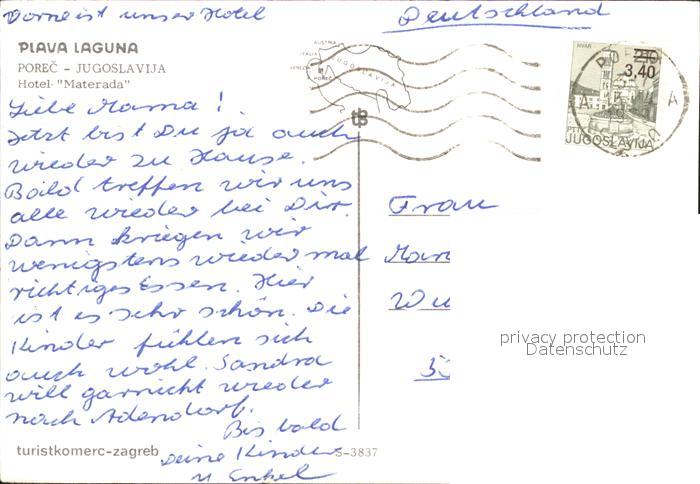 Vorne ist unser Hotel
Deutschland
PLAVA LAGUNA
POREČ – JUGOSLAVIJA
Hotel "Materada"
AUSTRIA
ITALIA
JUGOSLAVIJA
POREČ
HVAR
2,10
3,40
PTT
JUGOSLAVIJA
A
A
Liebe Mama!
Jetzt bist Du ja auch
wieder zu Hause.
Bald treffen wir uns
alle wieder bei Dir.
Dann kriegen wir
wenigstens wieder mal
richtiges Essen. Hier
ist es sehr schön. Die
Kinder fühlen sich
auch wohl. Sandra
will garnicht wieder
nach Adendorf.
Bis bald
Deine Kinder
u Enkel
Frau
privacy protection
Datenschutz
turistkomerc-zagreb
S-3837